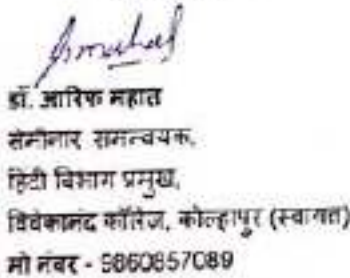 डॉ. आरिफ महात
सेमीनार समन्वयक,
हिंदी विभाग प्रमुख,
विवेकानंद कॉलेज, कोल्हापुर (स्वायत्त)
मो नंबर - 9860857089